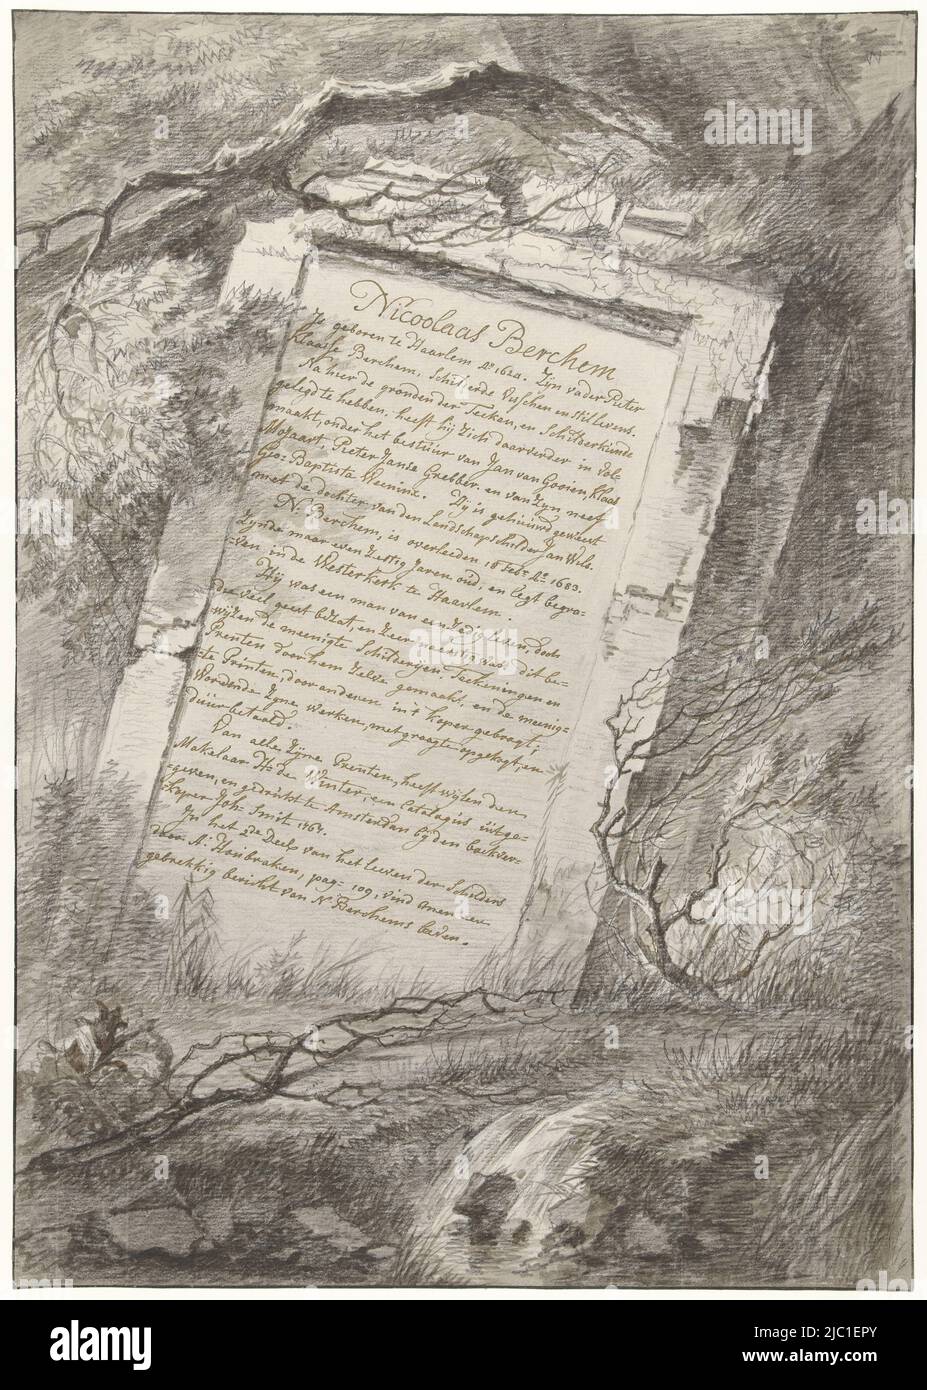 Nicoolaas Berchem
Is geboren te Haarlem Ao 1624. Zijn vader Pieter
Klaasse Berchem, Schilderde Visschen en Stillevens.
Na hier de gronden der Teeken, en Schilderkunde
gelegd te hebben, heeft hij zich daar verder in
gemaakt, onder het bestuur van Jan van Gooien, Klaas
Mojaart, Pieter Janse Grebber, en van zijn neef
Gio: Baptista Weeninx. Hij is gehuwd geweest
met de dochter van den Landschapschilder Jan Wils.
N. Berchem, is overleeden 18 Febr. Ao 1683.
Zijnde maar even Zestig Jaren oud, en legt begra-
-ven, in de Westerkerk te Haarlem.
Hij was een man van een Zedig leven, doch
die veel geest bezat, en Zeer naarstig was, dit be-
-wijzen de meenigte Schilderijen, Teekeningen en
Prenten door hem Zelve gemaakt, en de meenig-
-te Prenten, door anderen in't koper gebragt;
Wordende Zijne werken, met graagte opgekogt, en
duur betaald.
Van alle Zijne Prenten, heeft wijlen den
Makelaar H: de Winter, een Catalogus uitge-
-geven, en gedrukt te Amsterdam bij den boekver-
-koper Joh: Smit 1767.
In het 2de Deel van het Leeven der Schilders
door A. Houbraken, pag: 109, vind men een
gebrekkig bericht van N Berchems leven.
alamy
alamy
Image ID: 2JC1EPY
www.alamy.com